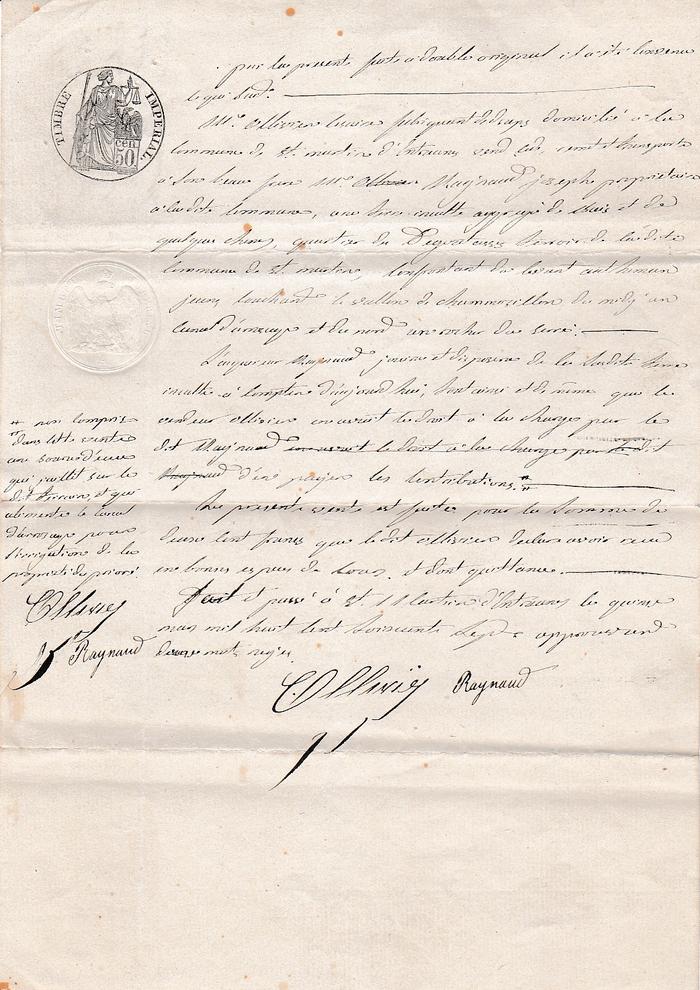 TIMBRE IMPERIAL
50 cen
par les présents faits à double original il a été convenu
ce qui suit.
Mr. Ollivier fabriquant de draps domicilié à la
commune de St. martin d'Entraunes vend, cède, remet et transporte
à son beau frère Mr. Raynaud joseph propriétaire
à la dite commune, une terre inculte de Bais et de
quelques chenes, quartier du terroir de la dite
commune de St. martin, confrontant du levant
jeune, couchant le vallon de Chammoeillon du midy un
canal d'arrosage et du nord un rocher du serre.
L'acquereur Raynaud jouira et disposera de la susdite terre
inculte à compter d'aujourd'hui, tout ainsi et de même que le
vendeur ollivier en avait le droit à la charge par le
dit Raynaud en avait le droit à la charge par le dit
Raynaud d'en payer les contributions. #
La présente vente est faite pour la somme de
deux cent francs que le dit ollivier déclare avoir reçu
en bonnes espèces de cours, et dont quittance.
Fait et passé à St. Martin d'Entraunes le quinze
mars mil huit cent soixante sept approuvant
douze mots rayés.
C. Ollivier Raynaud
# non compris
dans cette vente
une source d'eau
qui jaillit sur le
dit terrain, et qui
alimente le canal
d'arrosage pour
l'irrigation de la
propriété de prioré
C Ollivier
Raynaud